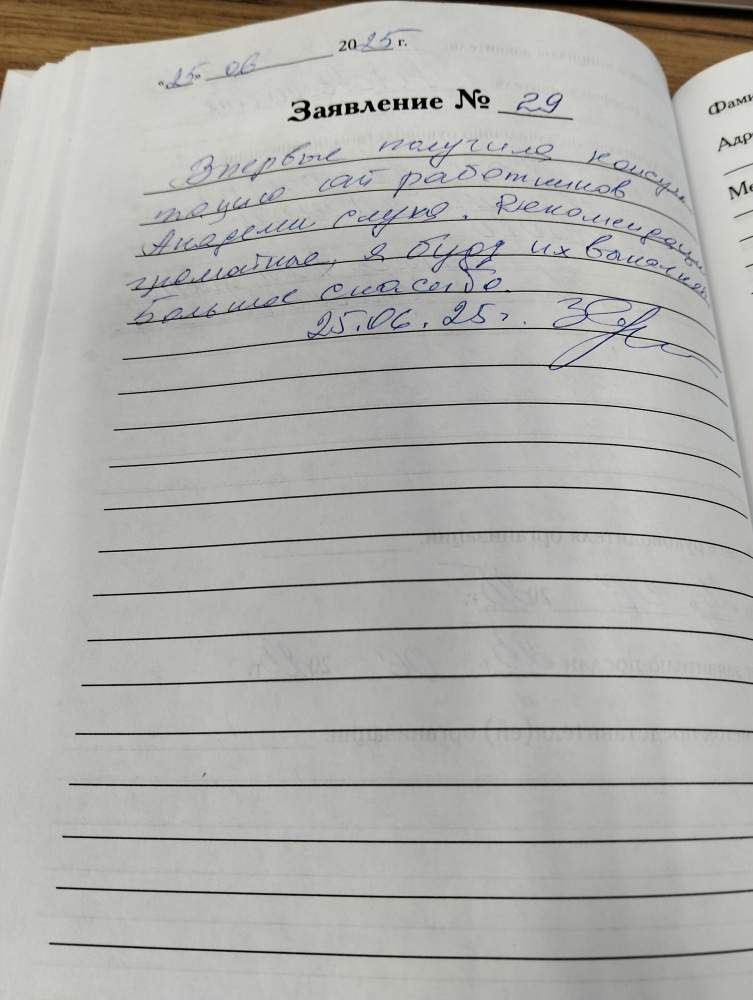 «25» 06 2025 г.
Заявление № 29
Впервые получила консуль
тацию от работников
Академи слуха. Рекомендации
громатные, я буду их выполнять.
Большое спасибо.
25.06.25г.
Фами
Адр
Ме